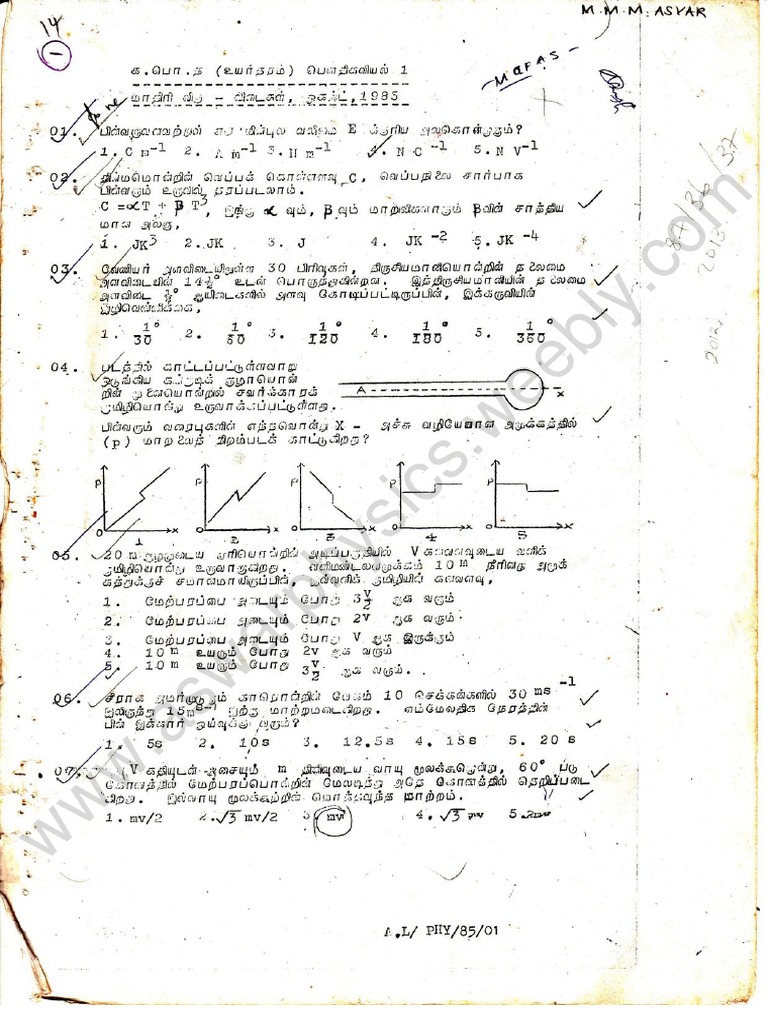 14
1
M.M.M. ASVAR
க.பொ.த (உயர்தரம்) பௌதிகவியல் 1
MAFAS -
மாதிரி விடைகள், ஓகஸ்ட், 1985
01. பின்வருவனவற்றுள் வலிமை E க்குரிய
1. C m⁻¹ 2. A m⁻¹ 3. N m⁻¹ 4. N C⁻¹ 5. N V⁻¹
02. திண்மமொன்றின் வெப்பக் கொள்ளளவு C, வெப்பநிலை சார்பாக
பின்வரும் உருவில் தரப்படலாம்.
C = αT + β T³, இங்கு α வும், β வும் மாறிலிகளாகும் βவின் சாத்திய
மான அலகு,
1. JK³ 2. JK 3. J 4. JK ⁻² 5. JK ⁻⁴
87/36/37
2013
03. வேணியர் அளவிடையிலுள்ள 30 பிரிவுகள், திருசியமானியொன்றின் தலைமை
அளவிடையில் 14½° உடன் பொருந்துகின்றன. இத்திருசியமானியின் தலைமை
அளவிடை ½° ஆயிடைகளில் அளவு கோடிடப்பட்டிருப்பின், இக்கருவியின்
இழிவெண்ணிக்கை,
1. 1/30° 2. 1/60° 3. 1/120° 4. 1/180° 5. 1/360°
2012
04. படத்தில் காட்டப்பட்டுள்ளவாறு
ஒடுங்கிய கண்ணாடிக் குழாயொன்
றின் முனையொன்றில் சவர்க்காரக்
குமிழியொன்று உருவாக்கப்பட்டுள்ளது.
A x
பின்வரும் வரைபுகளின் எந்தவொன்று X - அச்சு வழியேயான அமுக்கத்தில்
(p) மாறலைத் திறம்படக் காட்டுகிறது?
P P P P P
0 x 0 x 0 x 0 x 0 x
1 2 3 4 5
05. 20 m ஆழமுடைய ஏரியொன்றின் அடிப்பகுதியில் V கனவளவுடைய வளிக்
குமிழியொன்று உருவாகுகிறது. வளிமண்டலவமுக்கம் 10 m நீரினது அமுக்
கத்துக்குச் சமானமாயிருப்பின், இவ்வளிக் குமிழியின் கனவளவு,
1. மேற்பரப்பை அடையும் போது 3V/2 ஆக வரும்
2. மேற்பரப்பை அடையும் போது 2V ஆக வரும்
3. மேற்பரப்பை அடையும் போது V ஆக இருக்கும்
4. 10 m உயரும் போது 2V ஆக வரும்
5. 10 m உயரும் போது 3V/2 ஆக வரும்.
06. சீராக அமர்முடுகும் காரொன்றின் வேகம் 10 செக்கன்களில் 30 ms⁻¹
இலிருந்து 15ms⁻¹ இற்கு மாற்றமடைகிறது. எம்மேலதிக நேரத்தின்
பின் இக்கார் ஓய்வுக்கு வரும்?
1. 5s 2. 10s 3. 12.5s 4. 15s 5. 20s
07. V கதியுடன் அசையும் m திணிவுடைய வாயு மூலக்கூறொன்று, 60° படு
கோணத்தில் மேற்பரப்பொன்றின் மேலடித்து அதே கோணத்தில் தெறிப்படை
கிறது. இவ்வாயு மூலக்கூற்றின் மொத்தவுந்த மாற்றம்.
1. mv/2 2. √3 mv/2 3. mv 4. √3 mv 5. 2mv
A.L/ PHY/85/01
www.aswerphysics.weebly.com